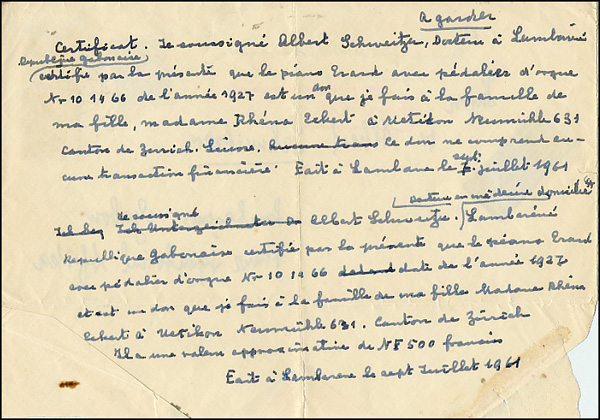 A garder
Certificat. Je soussigné Albert Schweitzer, Docteur à Lambaréné
République gabonaise
certifie par la présente que le piano Erard avec pédalier d'orgue
Nr 101466 de l'année 1927 est un don que je fais à la famille de
ma fille, madame Rhéna Eckert à Uetikon Neumühle 631
Canton de Zurich. Suisse. Aucune trans Ce don ne comprend au-
cune transaction financière. Fait à Lambarene le 7. sept. juillet 1961
Docteur en médecine domicilié à
Je soussigné
Ich bey Ich Unterzeichneter Dr Albert Schweitzer. Lambaréné
République Gabonaise certifie par la présente que le piano Erard
avec pédalier d'orgue Nr 101466 datant date de l'année 1927
et est un don que je fais à la famille de ma fille Madame Rhéna
Eckert à Uetikon Neumühle 631. Canton de Zürich
Il a une valeur approximative de NF 500 francais
Fait à Lambarene le sept Juillet 1961